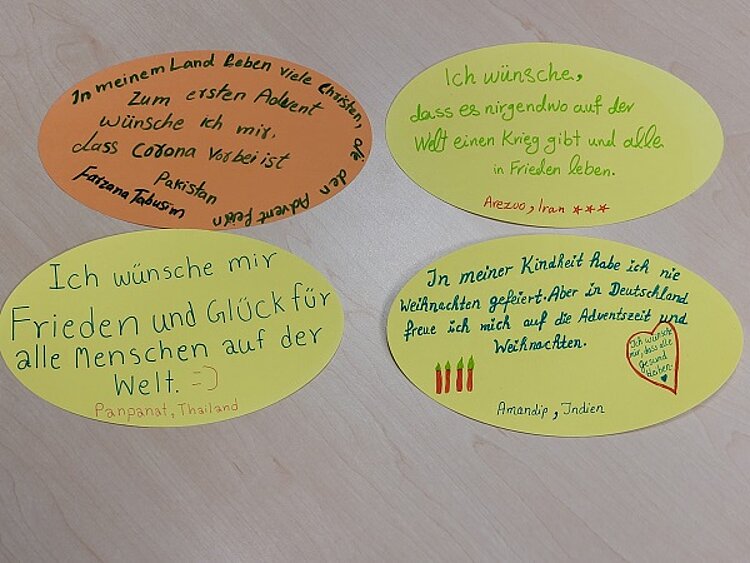 In meinem Land leben viele Christen, die den Advent feiern
Zum ersten Advent
wünsche ich mir,
dass Corona vorbei ist
Pakistan
Farzana Tabusim
Ich wünsche,
dass es nirgendwo auf der
Welt einen Krieg gibt und alle
in Frieden leben.
Arezoo, Iran ***
Ich wünsche mir
Frieden und Glück für
alle Menschen auf der
Welt. =)
Panpanat, Thailand
In meiner Kindheit habe ich nie
Weihnachten gefeiert. Aber in Deutschland
freue ich mich auf die Adventszeit und
Weihnachten.
Ich wünsche
mir, dass alle
gesund
bleiben.
Amandip, Indien